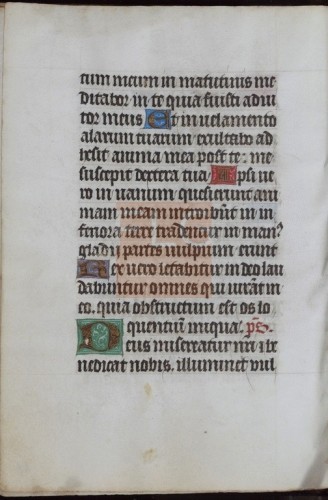 tum meum in matutinis me
ditabor in te quia fuisti adiu
tor meus Et in uelamento
alarum tuarum exultabo ad
hesit anima mea post te · me
suscepit dextera tua Ipsi ue
ro in uanum quesierunt ani
mam meam introibūt in in
feriora terre tradentur in manꝰ
gladij partes uulpium erunt
Rex uero letabitur in deo lau
dabuntur omnes qui iurāt in
eo. quia obstructum est os lo
quentiū iniqua. p̄s
Deus misereatur nr̄i ⁊ be
nedicat nobis. illuminet vul